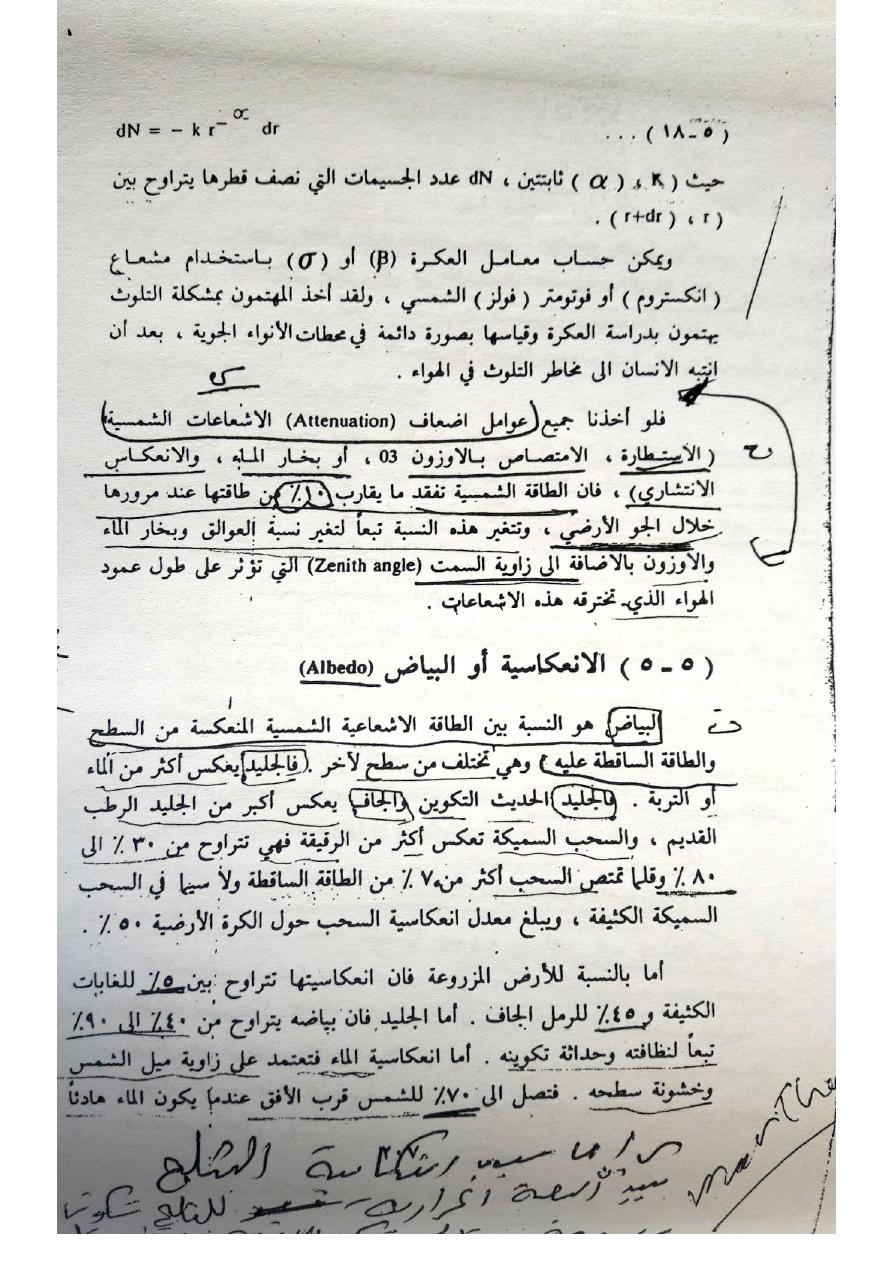 dN = – k r⁻ ∝ dr ... (٥-١٨)
حيث ( K ، α ) ثابتتين ، dN عدد الجسيمات التي نصف قطرها يتراوح بين
( r ) ، ( r+dr ) .
ويمكن حساب معامل العكرة (β) أو (σ) باستخدام مشعاع
( انكستروم ) أو فوتومتر ( فولز ) الشمسي ، ولقد أخذ المهتمون بمشكلة التلوث
يهتمون بدراسة العكرة وقياسها بصورة دائمة في محطات الأنواء الجوية ، بعد أن
انتبه الانسان الى مخاطر التلوث في الهواء .
فلو أخذنا جميع عوامل اضعاف (Attenuation) الاشعاعات الشمسية
( الاستطارة ، الامتصاص بالاوزون 03 ، أو بخار الماء ، والانعكاس
الانتشاري) ، فان الطاقة الشمسية تفقد ما يقارب ١٠٪ من طاقتها عند مرورها
خلال الجو الأرضي ، وتتغير هذه النسبة تبعاً لتغير نسبة العوالق وبخار الماء
والأوزون بالاضافة الى زاوية السمت (Zenith angle) التي تؤثر على طول عمود
الهواء الذي تخترقه هذه الاشعاعات .
( ٥ - ٥ ) الانعكاسية أو البياض (Albedo)
البياض هو النسبة بين الطاقة الاشعاعية الشمسية المنعكسة من السطح
والطاقة الساقطة عليه ، وهي تختلف من سطح لآخر . فالجليد يعكس أكثر من الماء
أو التربة . فالجليد الحديث التكوين والجاف يعكس أكبر من الجليد الرطب
القديم ، والسحب السميكة تعكس أكثر من الرقيقة فهي تتراوح من ٣٠ ٪ الى
٨٠ ٪ وقلما تمتص السحب أكثر من ٧ ٪ من الطاقة الساقطة ولا سيما في السحب
السميكة الكثيفة ، ويبلغ معدل انعكاسية السحب حول الكرة الأرضية ٥٠ ٪ .
أما بالنسبة للأرض المزروعة فان انعكاسيتها تتراوح بين ٥٪ للغابات
الكثيفة و ٤٥٪ للرمل الجاف . أما الجليد فان بياضه يتراوح من ٤٠٪ الى ٩٠٪
تبعاً لنظافته وحداثة تكوينه . أما انعكاسية الماء فتعتمد على زاوية ميل الشمس
وخشونة سطحه . فتصل الى ٧٠٪ للشمس قرب الأفق عندما يكون الماء هادئاً